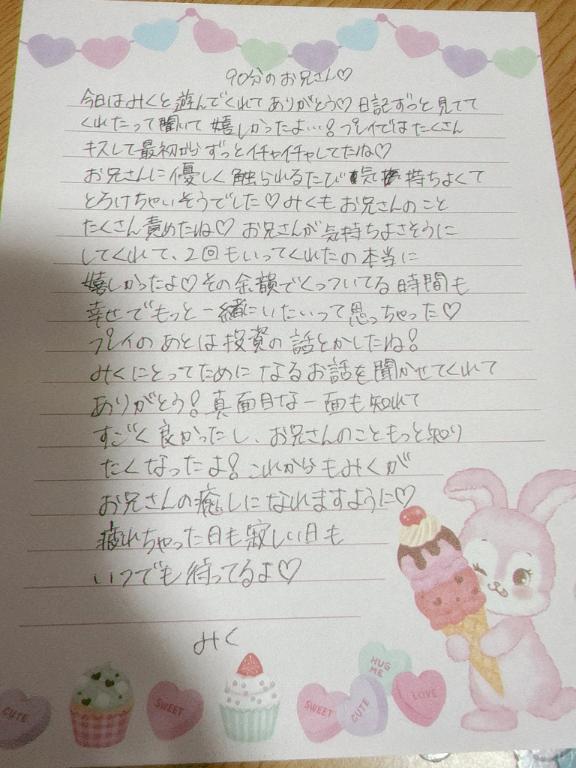 90分のお兄さん♡
今日はみくと遊んでくれてありがとう♡日記ずっと見てて
くれたって聞いて嬉しかったよ…!プレイではたくさん
キスして最初からずっとイチャイチャしてたね♡
お兄さんに優しく触られるたび気持ちよくて
とろけちゃいそうでした♡みくもお兄さんのこと
たくさん責めたね♡お兄さんが気持ちよさそうに
してくれて、2回もいってくれたの本当に
嬉しかったよ♡その余韻でくっついてる時間も
幸せでもっと一緒にいたいって思っちゃった♡
プレイのあとは投資の話とかしたね!
みくにとってためになるお話を聞かせてくれて
ありがとう!真面目な一面も知れて
すごく良かったし、お兄さんのこともっと知り
たくなったよ!これからもみくが
お兄さんの癒しになれますように♡
疲れちゃった日も寂しい日も
いつでも待ってるよ♡
みく
HUG ME
CUTE
SWEET
SWEET
CUTE
LOVE